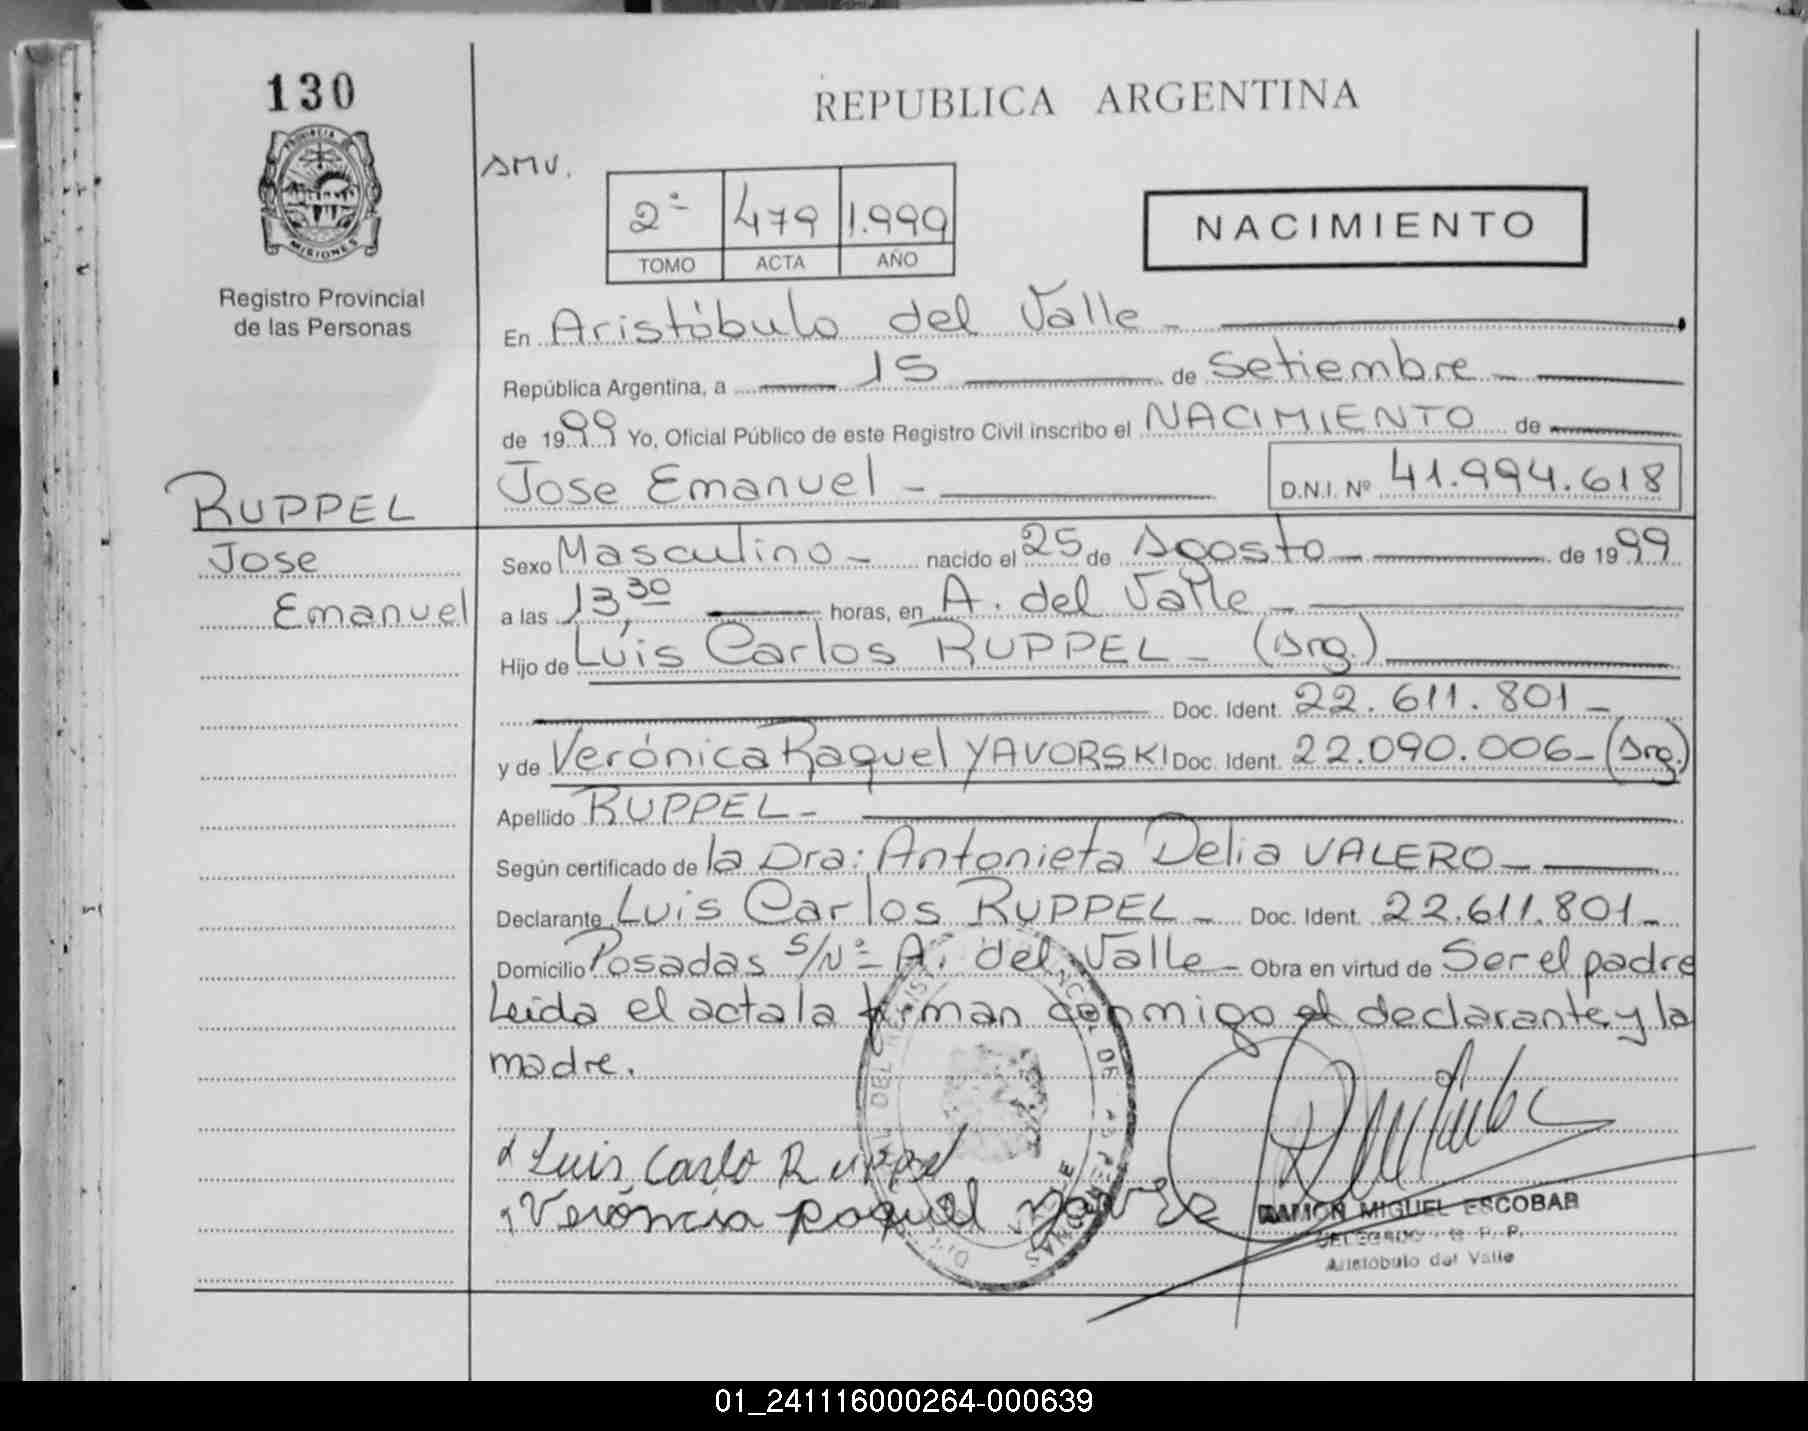 130
REPUBLICA ARGENTINA
PROVINCIA
MISIONES
Registro Provincial
de las Personas
AMV.
2º 479 1.999
TOMO ACTA AÑO
NACIMIENTO
En Aristóbulo del Valle -
República Argentina, a 15 de Setiembre -
de 1999 Yo, Oficial Público de este Registro Civil inscribo el NACIMIENTO de
RUPPEL
Jose Emanuel - D.N.I. Nº 41.994.618
Jose
Emanuel
Sexo Masculino - nacido el 25 de Agosto - de 1999
a las 13,30 horas, en A. del Valle -
Hijo de Luis Carlos RUPPEL - (Arg.)
Doc. Ident. 22.611.801 -
y de Verónica Raquel YAVORSKI Doc. Ident. 22.090.006 - (Arg.)
Apellido RUPPEL -
Según certificado de la Dra: Antonieta Delia VALERO -
Declarante Luis Carlos RUPPEL - Doc. Ident. 22.611.801 -
Domicilio Posadas S/Nº - A. del Valle - Obra en virtud de Ser el padre
Leida el acta la firman conmigo el declarante y la
madre.
Luis Carlo Ruppel
Veróncia Raquel
RAMON MIGUEL ESCOBAR
DELEGADO - R. P. P.
Aristóbulo del Valle
01_241116000264-000639